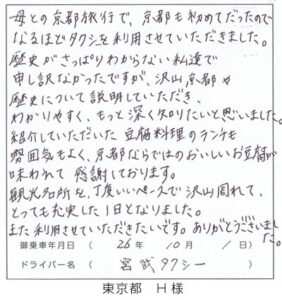 母との京都旅行で、京都も初めてだったので
なるほどタクシーを利用させていただきました。
歴史がさっぱりわからない私達で
申し訳なかったですが、沢山京都や
歴史について説明していただき、
わかりやすく、もっと深く知りたいと思いました。
紹介していただいた豆腐料理のランチも
雰囲気もよく、京都ならではのおいしいお豆腐が
味われて 感謝しております。
観光名所を、丁度いいペースで沢山周れて、
とっても充実した1日となりました。
また利用させていただきたいです。ありがとうございました。
御乗車年月日 ( 26年 10月 / 日)
ドライバー名 ( 宮武タクシー )
東京都 H様